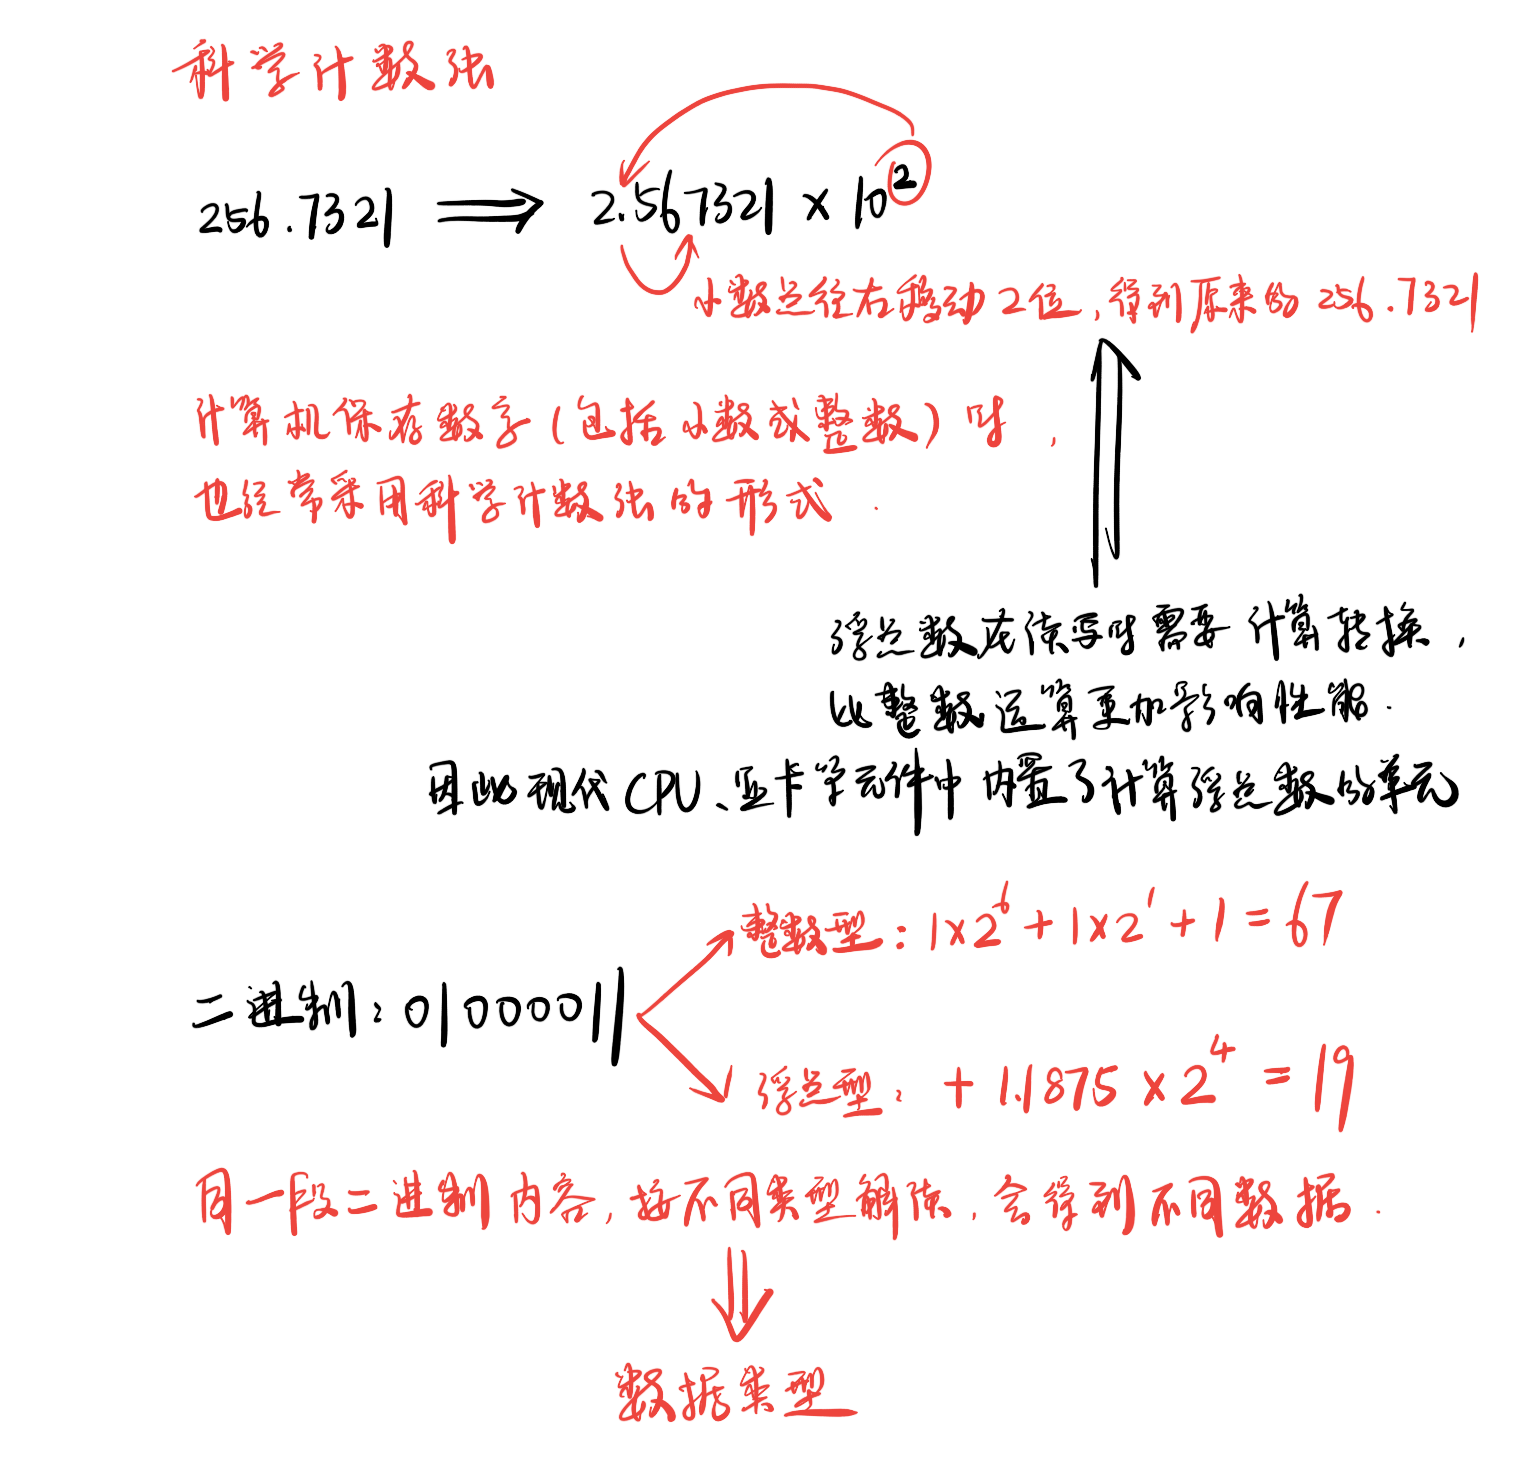 科学计数法
256.7321 ⟹ 2.567321 × 10²
小数点往右移动2位,得到原来的256.7321
计算机保存数字(包括小数或整数)时,
也经常采用科学计数法的形式.
浮点数在读写时需要计算转换,
比整数运算更加影响性能.
因此现代CPU、显卡等元件中内置了计算浮点数的单元
整数型: 1×2⁶ + 1×2¹ + 1 = 67
二进制: 01000011
浮点型: + 1.1875 × 2⁴ = 19
同一段二进制内容,按不同类型解读,会得到不同数据.
数据类型